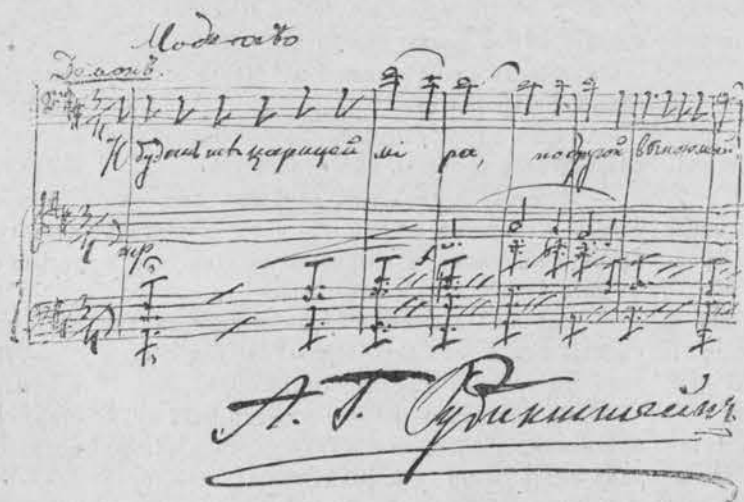 Moderato
Демонъ.
И будешь ты царицей мi ра, подругой
mp
А. Г. Рубинштейнъ